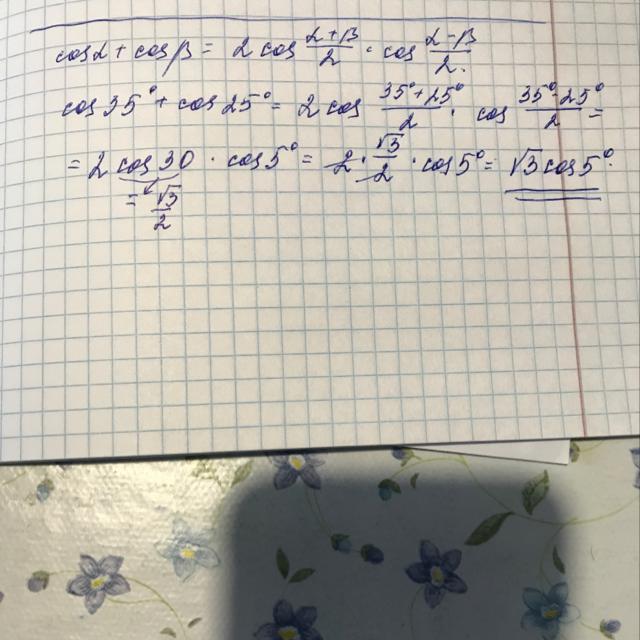 cos α + cos β = 2 cos (α+β)/2 · cos (α-β)/2.
cos 35° + cos 25° = 2 cos (35°+25°)/2 · cos (35°-25°)/2 =
= 2 cos 30 · cos 5° = 2 · √3/2 · cos 5° = √3 cos 5°.
= √3/2